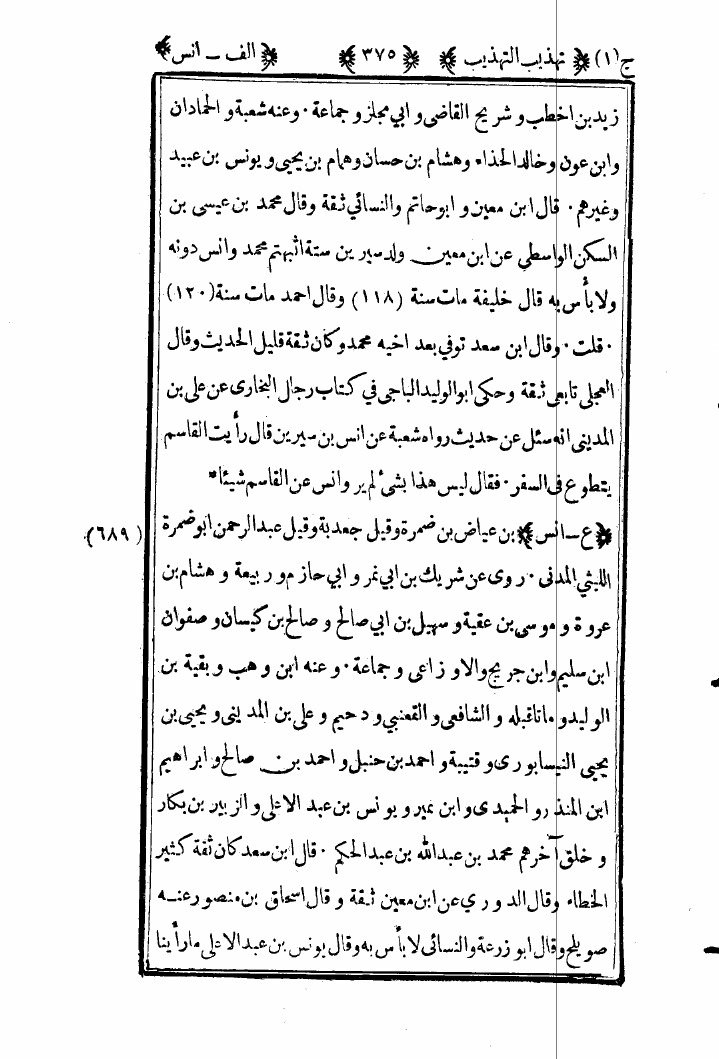 ج(١) ﴿ تهذيب التهذيب ﴾ ﴿ ٣٧٥ ﴾ ﴿ الف ــ انس ﴾
زيد بن اخطب و شريح القاضى و ابي مجلز و جماعة ٠ وعنه شعبة و الحمادان
وابن عون و خالد الحذاء وهشام بن حسان وهمام بن يحيى و يونس بن عبيد
وغيرهم ٠ قال ابن معين و ابوحاتم والنسائي ثقة وقال محمد بن عيسى بن
السكن الواسطي عن ابن معين ولد سيرين ستة اثبتهم محمد وانس دونه
ولا بأس به قال خليفة مات سنة (١١٨) وقال احمد مات سنة (١٢٠)
٠ قلت ٠ وقال ابن سعد توفي بعد اخيه محمد وكان ثقة قليل الحديث وقال
العجلي تابعى ثقة وحكى ابوالوليد الباجى في كتاب رجال البخارى عن على بن
المدينى انه سئل عن حديث رواه شعبة عن انس بن سيرين قال رأيت القاسم
يتطوع فى السفر ٠ فقال ليس هذا بشئ لم ير وانس عن القاسم شيئا *
﴿ ع ــ انس ﴾ بن عياض بن ضمرة وقيل جعدبة وقيل عبدالرحمن ابوضمرة (٦٨٩)
الليثي المدنى ٠ روى عن شريك بن ابي نمر و ابي حازم و ربيعة و هشام بن
عروة و موسى بن عقبة و سهيل بن ابي صالح و صالح بن كيسان و صفوان
ابن سليم وابن جريج والاوزاعى و جماعة ٠ و عنه ابن وهب و بقية بن
الوليد و ماتا قبله و الشافعى و القعنبي و دحيم و على بن المدينى و يحيى بن
يحيى النيسابورى و قتيبة و احمد بن حنبل و احمد بن صالح و ابراهيم
ابن المنذر و الحميدى وابن نمير و يونس بن عبد الاعلى و الزبير بن بكار
و خلق آخرهم محمد بن عبدالله بن عبدالحكم ٠ قال ابن سعد كان ثقة كثير
الخطاء وقال الدوري عن ابن معين ثقة و قال اسحاق بن منصور عنه
صويلح وقال ابو زرعة والنسائى لا بأس به وقال يونس بن عبد الاعلى ما رأينا